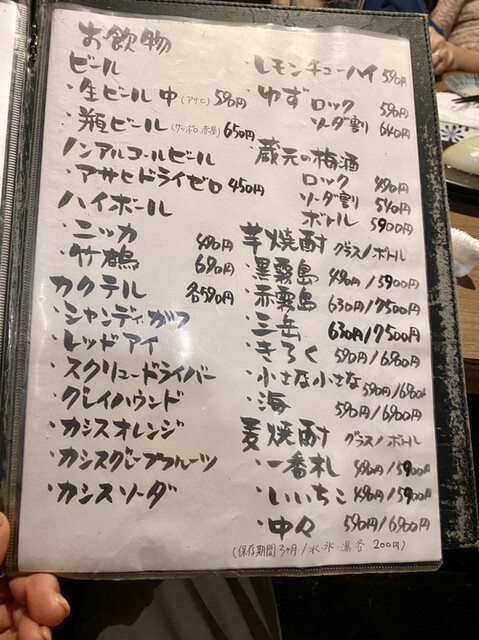 お飲物
ビール
・生ビール 中 (アサヒ) 590円
・瓶ビール (サッポロ赤星) 650円
ノンアルコールビール
・アサヒドライゼロ 450円
ハイボール
・ニッカ 490円
・竹鶴 690円
カクテル 各590円
・シャンディガフ
・レッドアイ
・スクリュードライバー
・グレイハウンド
・カシスオレンジ
・カシスグレープフルーツ
・カシスソーダ
・レモンチューハイ 590円
・ゆず ロック 590円
ソーダ割 640円
・蔵元の梅酒
ロック 490円
ソーダ割 540円
ボトル 5900円
芋焼酎 グラス/ボトル
・黒霧島 490円/5900円
・赤霧島 630円/7500円
・三岳 630円/7500円
・きろく 590円/6900円
・小さな小さな 590円/6900円
・海 590円/6900円
麦焼酎 グラス/ボトル
・一番札 490円/5900円
・いいちこ 490円/5900円
・中々 590円/6900円
(保存期間3ヶ月/水・氷・湯 各200円)